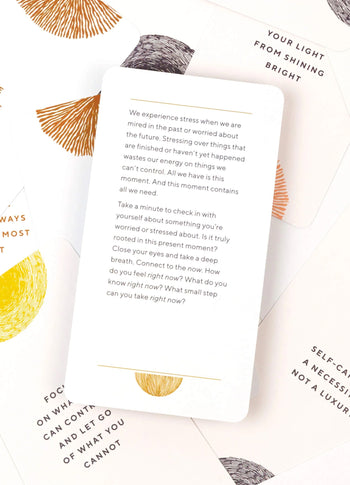 YOUR LIGHT
FROM SHINING
BRIGHT
We experience stress when we are
mired in the past or worried about
the future. Stressing over things that
are finished or haven't yet happened
wastes our energy on things we
can't control. All we have is this
moment. And this moment contains
all we need.
Take a minute to check in with
yourself about something you're
worried or stressed about. Is it truly
rooted in this present moment?
Close your eyes and take a deep
breath. Connect to the now. How
do you feel right now? What do you
know right now? What small step
can you take right now?
MOST
SELF-CA
A NECESSI
NOT A LUXUR
FOC
ON WHA
CAN CONTR
AND LET GO
OF WHAT YOU
CANNOT